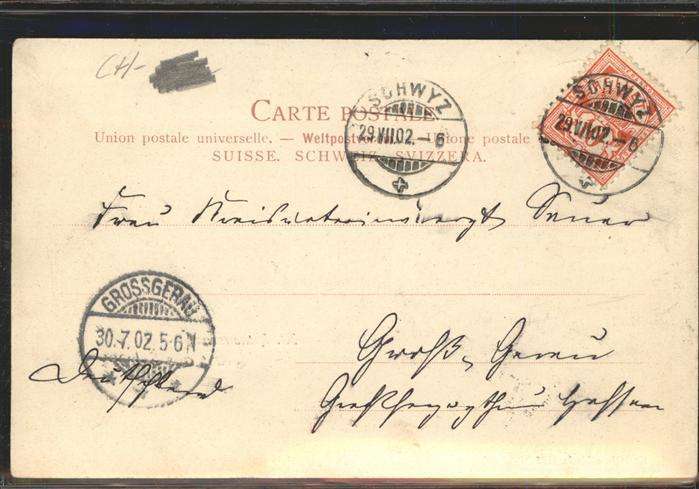 CH-
CARTE POSTALE
Union postale universelle. — Weltpostverein. — Unione postale
SUISSE. SCHWEIZ. SVIZZERA.
SCHWYZ
29.VII.02.–6
SCHWYZ
29.VII.02.–6
Frau Kreisveterinärarzt
GROSSGERAU
30.7.02.5-6N
Groß-Gerau
Deutschland
Großherzogthum Hessen